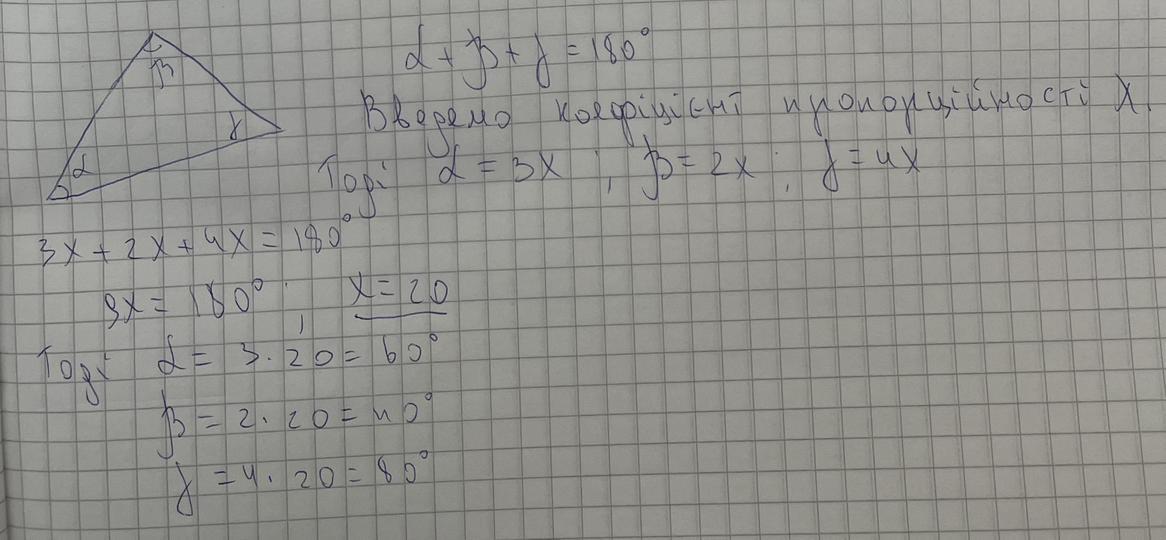 β
γ
α
α + β + γ = 180°
Введемо коефіцієнт пропорційності x.
Тоді α = 3x ; β = 2x ; γ = 4x
3x + 2x + 4x = 180°
9x = 180° ; x = 20
Тоді α = 3 · 20 = 60°
β = 2 · 20 = 40°
γ = 4 · 20 = 80°